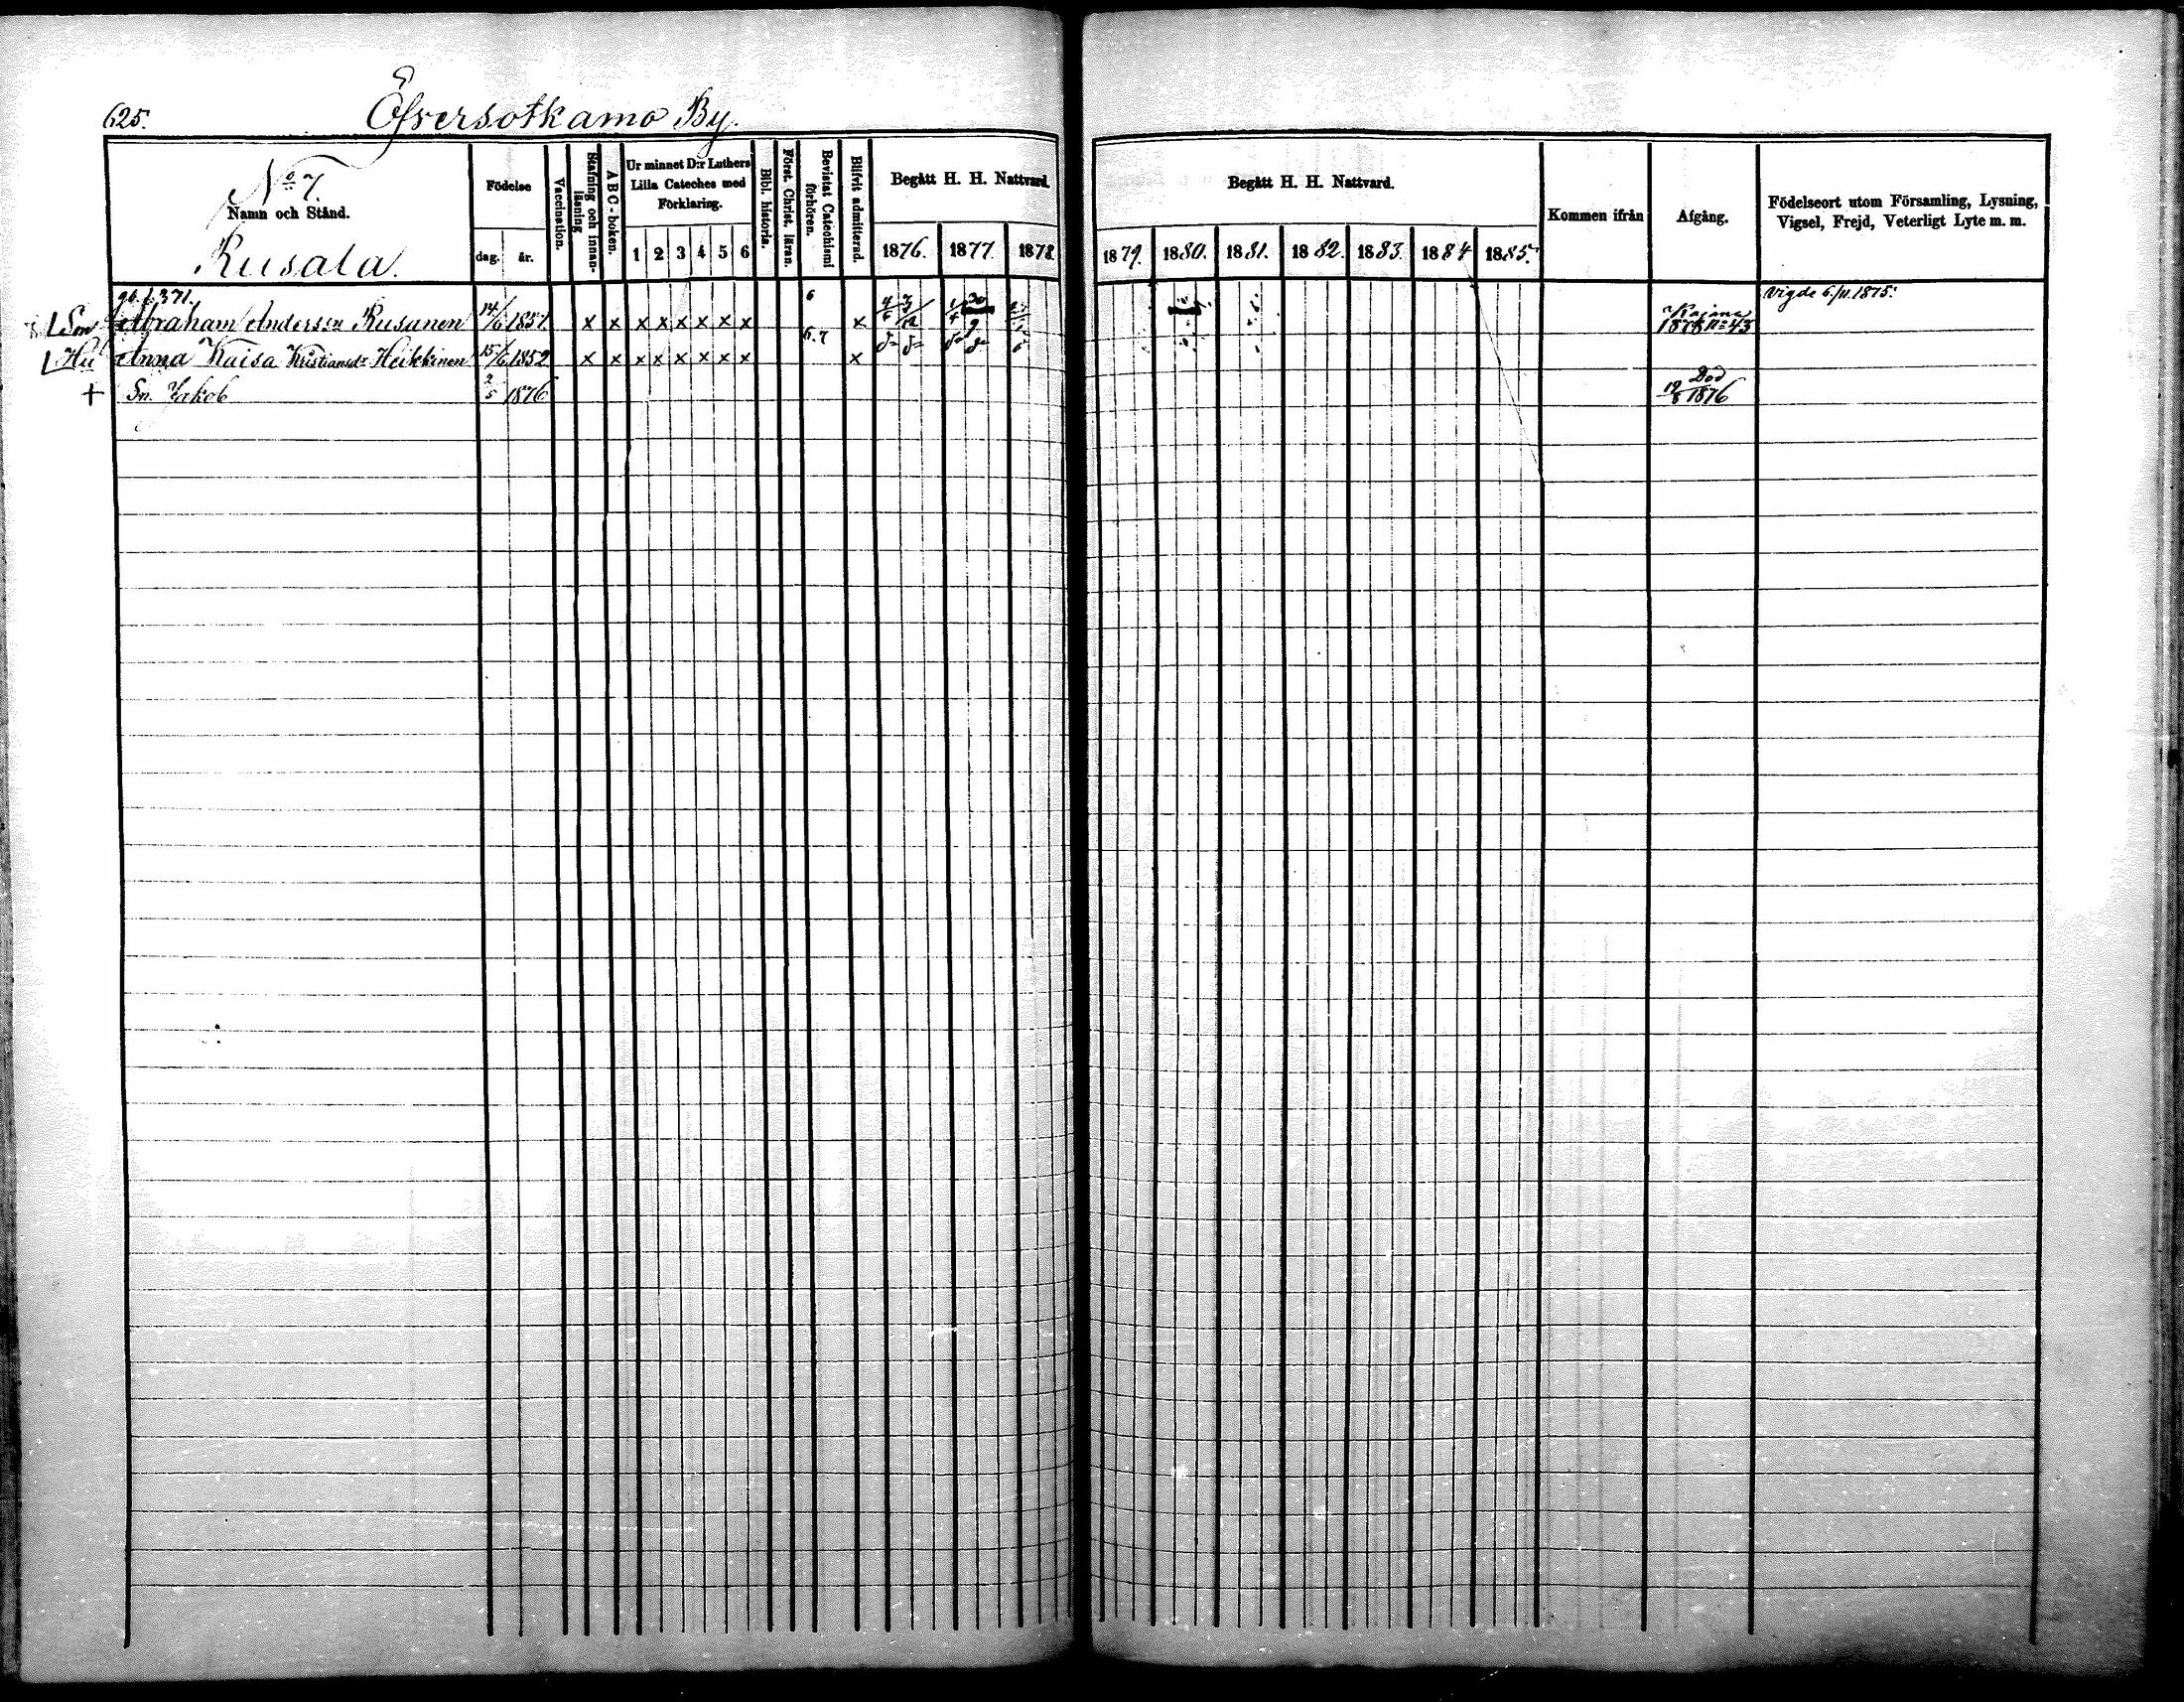 625.
Öfversotkamo By.
No 7.
Namn och Stånd.
Rusala.
Födelse
dag. år.
Vaccination.
Stafning och innan-läsning
A B C-boken.
Ur minnet D:r Luthers
Lilla Cateches med
Förklaring.
1 2 3 4 5 6
Bibl. historia.
Först. Christ. läran.
Bevistat Catechismi förhören.
Blifvit admitterad.
Begått H. H. Nattvard.
1876. 1877. 1878.
Begått H. H. Nattvard.
1879. 1880. 1881. 1882. 1883. 1884 1885.
Kommen ifrån
Afgång.
Födelseort utom Församling, Lysning,
Vigsel, Frejd, Veterligt Lyte m. m.
371. 6 Vigde 6/11 1875.
Son Abraham Andersson Rusanen 14/6 1851 x x x x x x x x x Kajana
6.7
Hu Anna Kaisa Kristiansdr Heikkinen 15/6 1852 x x x x x x x x x
+ Sn. Jakob 2/5 1876 Död
19/8 1876